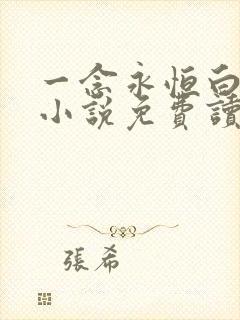 一念永恒白
小說免費讀
張希